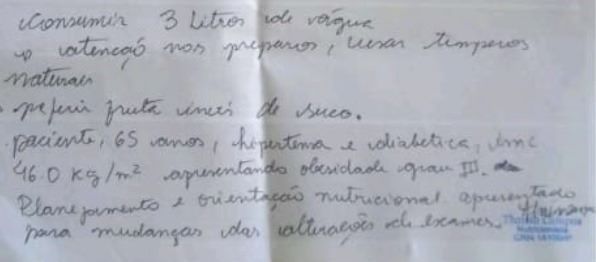 Consumir 3 Litros de água
atenção nos preparos, usar temperos
naturais
preferir fruta invés de suco.
paciente, 65 anos, hipertensa e diabética, imc
46.0 Kg/m² apresentando obesidade grau III.
Planejamento e orientação nutricional apresentado
para mudanças das alterações de exames.
Nutricionista